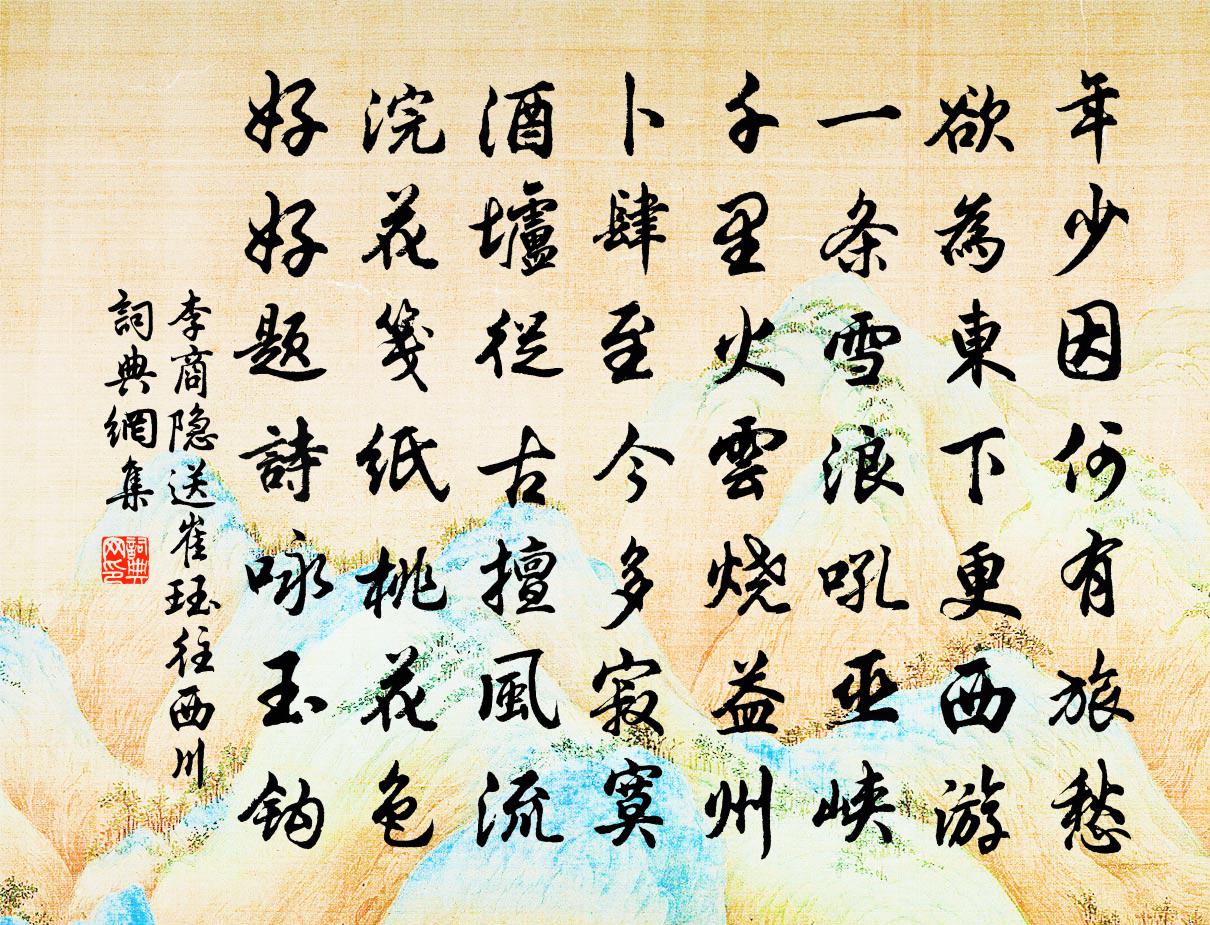 年少因何有旅愁
欲為東下更西游
一条雪浪吼巫峡
千里火雲烧益州
卜肆至今多寂寞
酒壚從古擅風流
浣花箋紙桃花色
好好题詩咏玉钩
李商隐送崔珏往西川
詞典網集
詞典网印